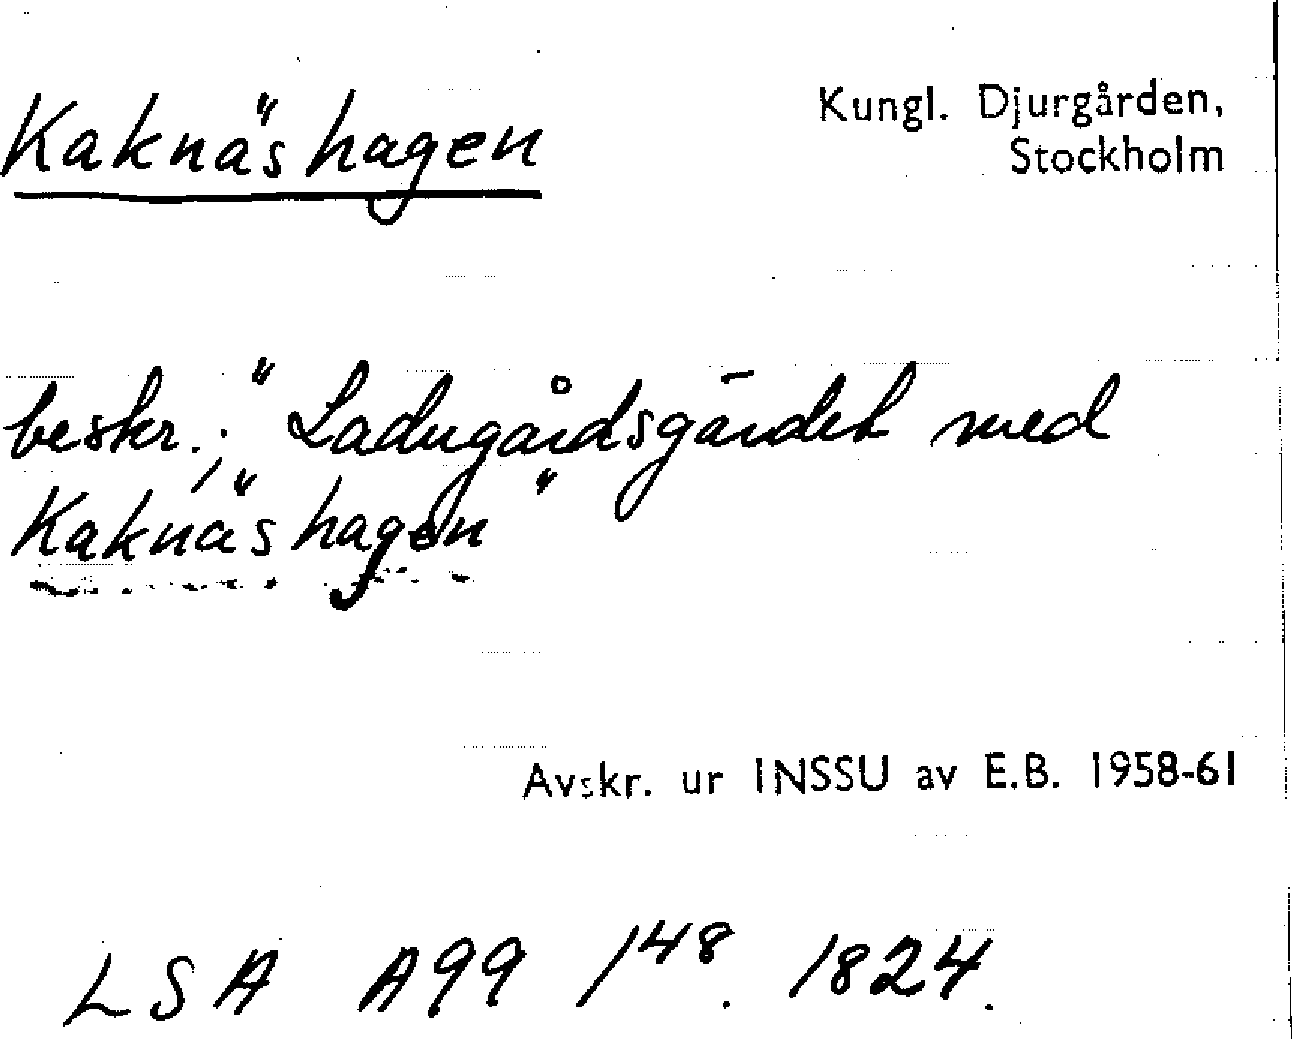 Kaknäshagen
Kungl. Djurgården,
Stockholm
beskr.; "Ladugårdsgärdet med
Kaknäshagen"
Avskr. ur INSSU av E.B. 1958-61
LSA A99 1⁴⁸. 1824.